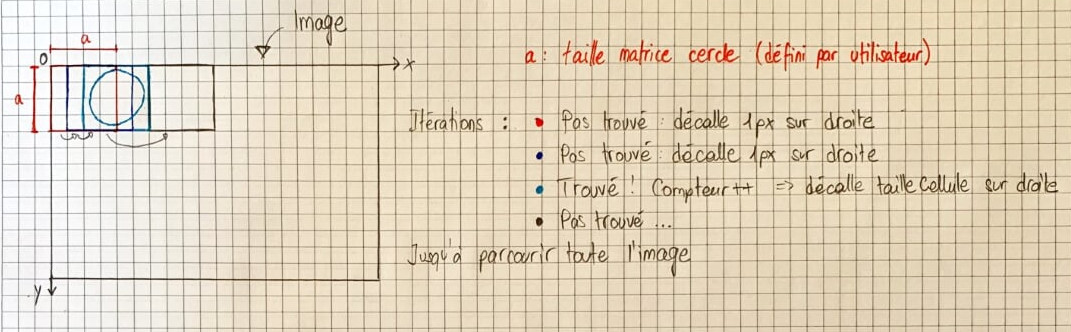 Image
a
O
x
a
y
a : taille matrice cercle (défini par utilisateur)
Itérations : • Pas trouvé : décalle 1px sur droite
• Pas trouvé : décalle 1px sur droite
• Trouvé ! Compteur++ => décalle taille Cellule sur droite
• Pas trouvé ...
Jusqu'à parcourir toute l'image